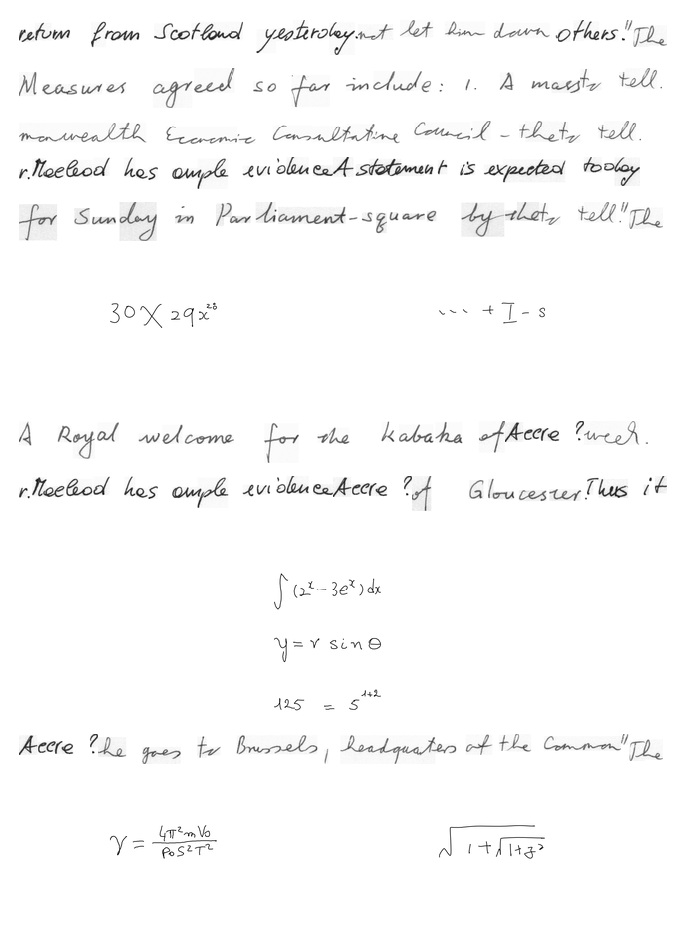 return from Scotland yesterday.not let him down others."The
Measures agreed so far include: 1. A to tell.
monwealth Economic Consultative Council - tell.
r.Macleod has ample evidence A statement is expected today
for Sunday in Parliament-square by tell."The
30 X 29x^{28}
... + I - s
A Royal welcome for the Kabaka of Accre ? week.
r.Macleod has ample evidence Accre ? of Gloucester.Thus it
∫(2^x - 3e^x)dx
y = r sin θ
125 = 5^{1+2}
Accre ? he goes to Brussels, headquaters of the Common "The
γ = \frac{4π^2 m V_0}{P_0 S^2 T^2}
\sqrt{1+\sqrt{1+z^2}}